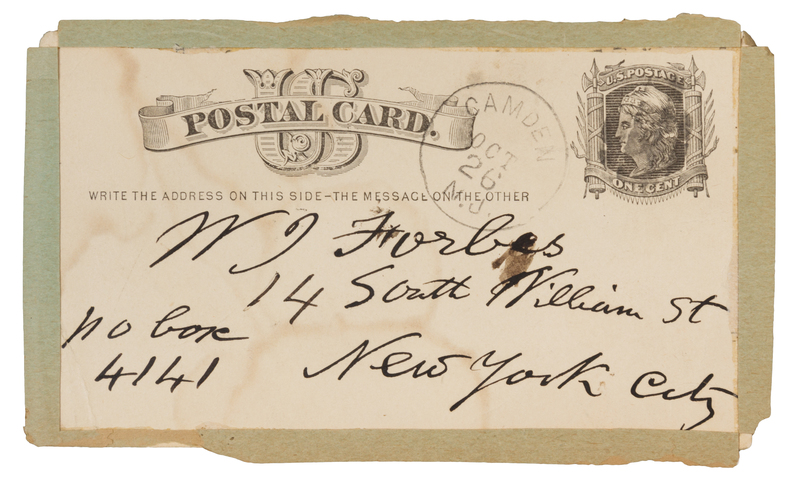 US
POSTAL CARD.
CAMDEN
OCT
26
N.J.
U.S. POSTAGE
ONE CENT
WRITE THE ADDRESS ON THIS SIDE–THE MESSAGE ON THE OTHER
W J Forbes
14 South William St
po box
4141
New York City